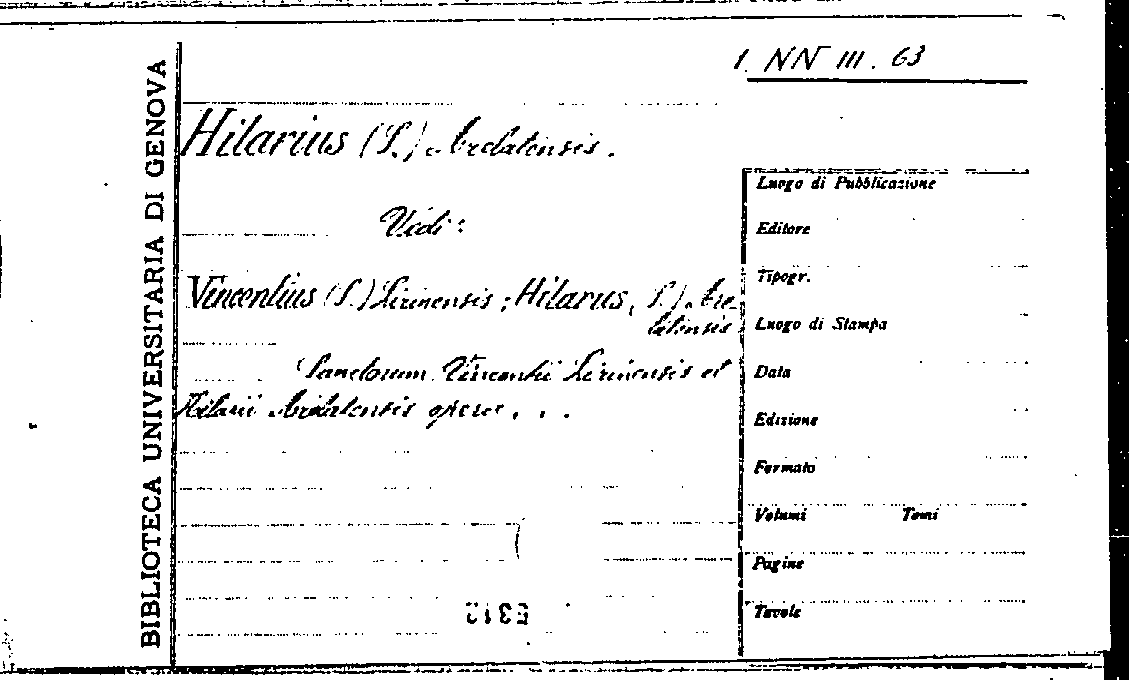 1. NN III. 63
BIBLIOTECA UNIVERSITARIA DI GENOVA
Hilarius (S.) Arelatensis.
Vedi:
Vincentius (S.) Lirinensis; Hilarus, S.) Are-
latensis
Sanctorum Vincentii Lirinensis et
Hilarii Arelatensis opera...
Luogo di Pubblicazione
Editore
Tipogr.
Luogo di Stampa
Data
Edizione
Formato
Volumi Tomi
Pagine
Tavole